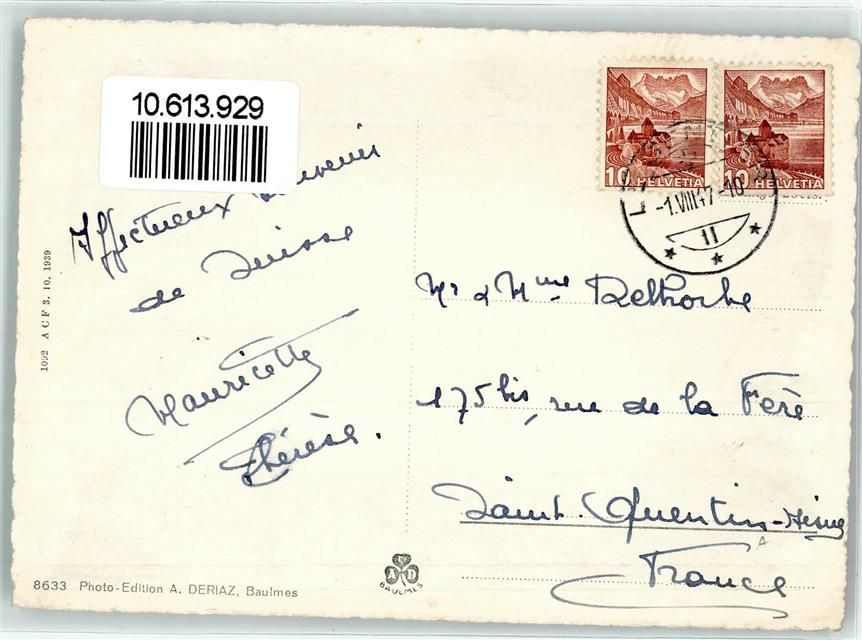 10.613.929
Affectueux Souvenir
de Suisse
Mauricette
Thérèse.
1092 A C F 3. 10. 1939
8633 Photo-Edition A. DERIAZ, Baulmes
A D
BAULMES
10 HELVETIA
10 HELVETIA
-1.VIII 47-10
11
Mr & Mme Delhorbe
175 bis, rue de la Fère
Saint-Quentin-Aisne
France